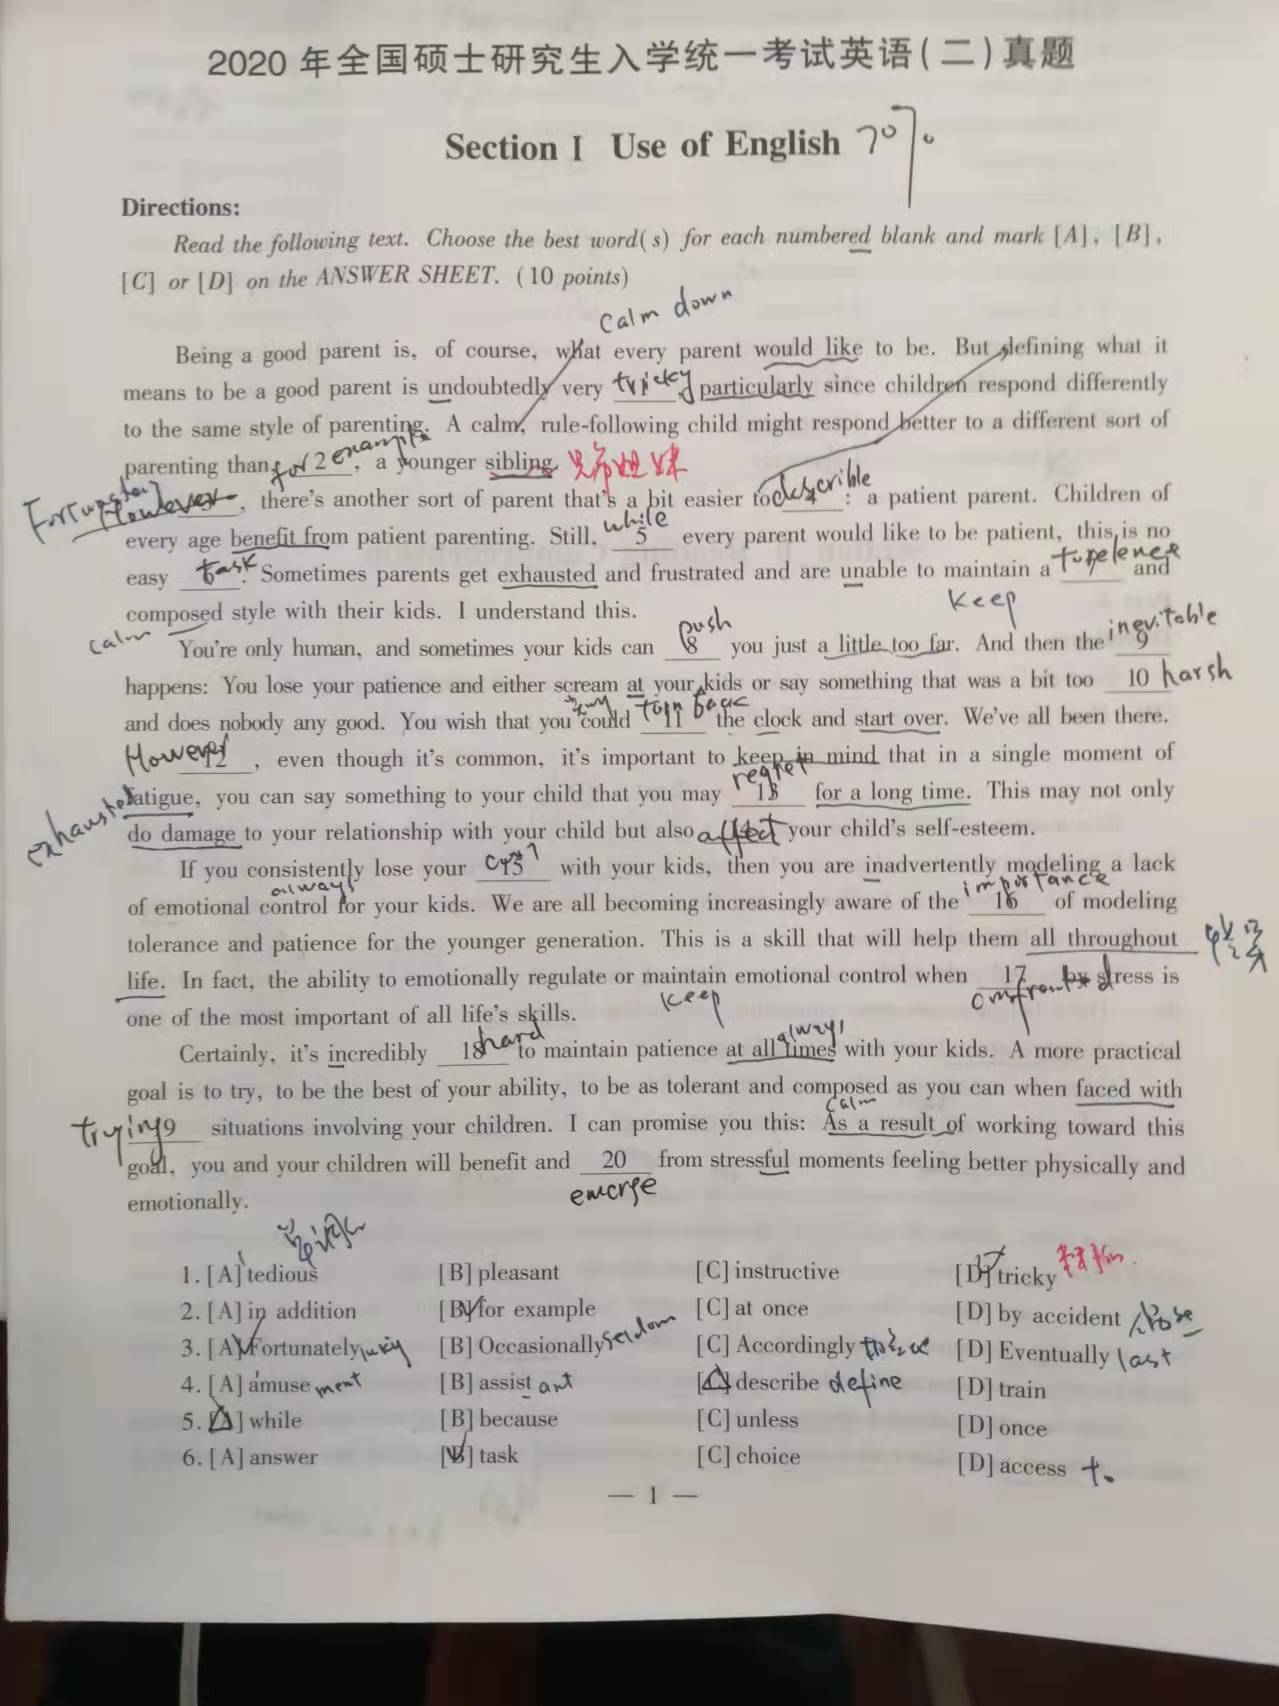 2020年全国硕士研究生入学统一考试英语(二)真题
Section I Use of English 70%
Directions:
Read the following text. Choose the best word(s) for each numbered blank and mark [A], [B],
[C] or [D] on the ANSWER SHEET. (10 points)
Calm down
Being a good parent is, of course, what every parent would like to be. But defining what it
means to be a good parent is undoubtedly very tricky particularly since children respond differently
to the same style of parenting. A calm, rule-following child might respond better to a different sort of
parenting than for 2 example, a younger sibling. 兄弟姐妹
Fortunately However, there's another sort of parent that's a bit easier to describle: a patient parent. Children of
every age benefit from patient parenting. Still, while 5 every parent would like to be patient, this is no
easy task. Sometimes parents get exhausted and frustrated and are unable to maintain a topelence and
composed style with their kids. I understand this. keep
calm You're only human, and sometimes your kids can push 8 you just a little too far. And then the inevitable 9
happens: You lose your patience and either scream at your kids or say something that was a bit too 10 harsh
and does nobody any good. You wish that you could torn back 11 the clock and start over. We've all been there.
However 12, even though it's common, it's important to keep in mind that in a single moment of
exhausted fatigue, you can say something to your child that you may regret 13 for a long time. This may not only
do damage to your relationship with your child but also affect your child's self-esteem.
If you consistently lose your 15 with your kids, then you are inadvertently modeling a lack
always importance
of emotional control for your kids. We are all becoming increasingly aware of the 16 of modeling
tolerance and patience for the younger generation. This is a skill that will help them all throughout
life. In fact, the ability to emotionally regulate or maintain emotional control when 17 by stress is
keep
one of the most important of all life's skills.
Certainly, it's incredibly 18 hard to maintain patience at all times with your kids. A more practical
goal is to try, to be the best of your ability, to be as tolerant and composed as you can when faced with
calm
trying 19 situations involving your children. I can promise you this: As a result of working toward this
goal, you and your children will benefit and 20 from stressful moments feeling better physically and
emotionally. emerge
1. [A] tedious [B] pleasant [C] instructive [D] tricky
2. [A] in addition [B] for example [C] at once [D] by accident
3. [A] Fortunately luky [B] Occasionally seldom [C] Accordingly [D] Eventually last
4. [A] amuse ment [B] assist ant [C] describe define [D] train
5. [A] while [B] because [C] unless [D] once
6. [A] answer [B] task [C] choice [D] access to
— 1 —